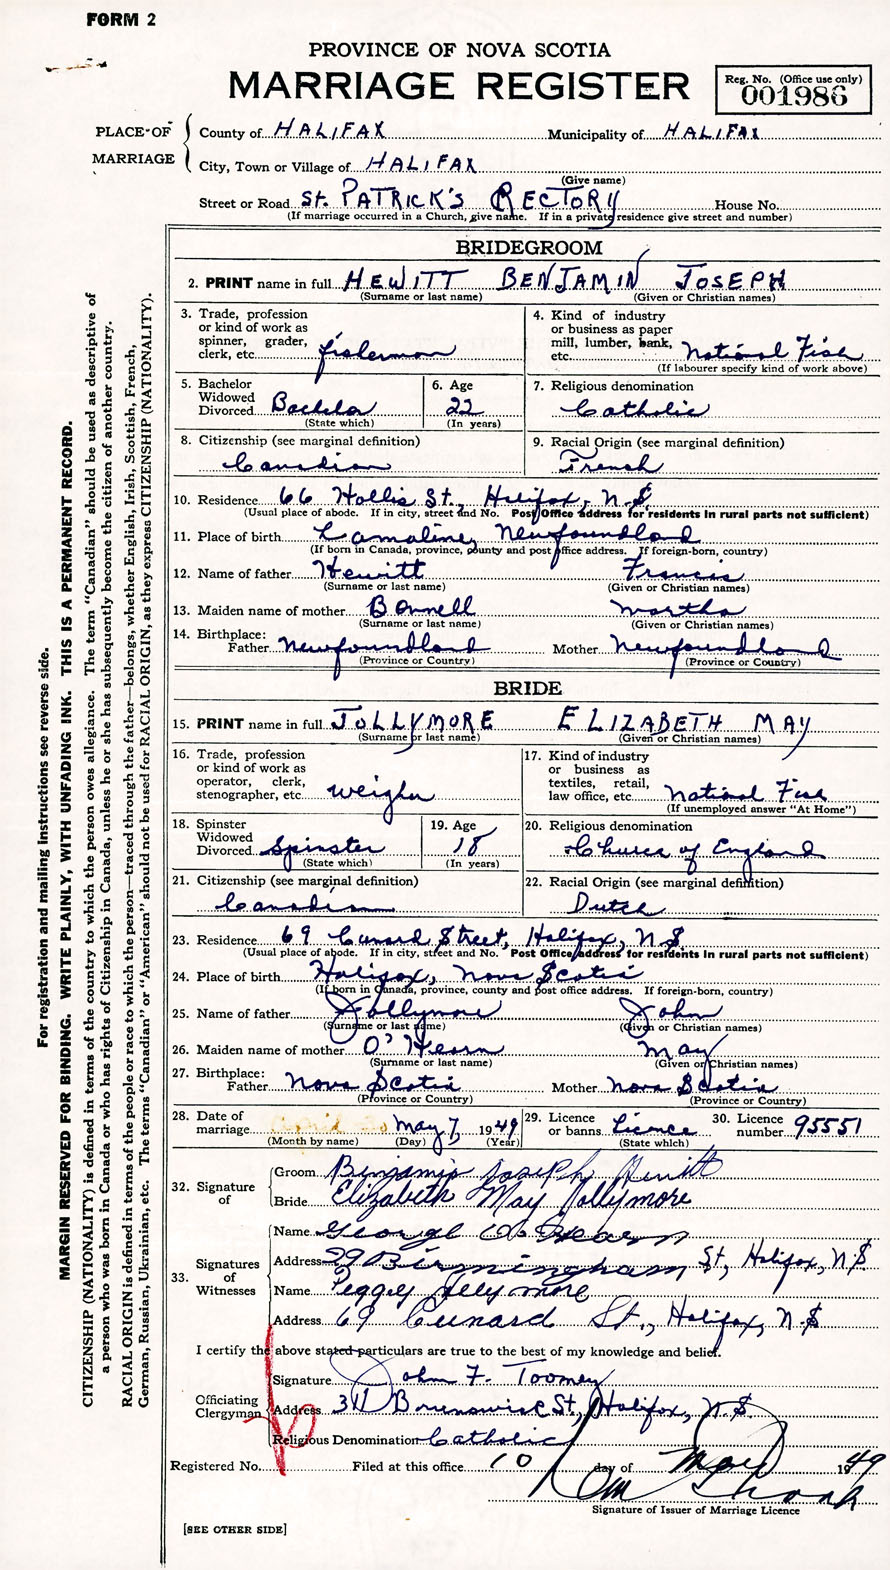 FORM 2
PROVINCE OF NOVA SCOTIA
MARRIAGE REGISTER
Reg. No. (Office use only)
001986
PLACE OF MARRIAGE
County of HALIFAX Municipality of HALIFAX
City, Town or Village of HALIFAX
(Give name)
Street or Road St. PATRICK'S RECTORY House No.
(If marriage occurred in a Church, give name. If in a private residence give street and number)
BRIDEGROOM
2. PRINT name in full HEWITT BENJAMIN JOSEPH
(Surname or last name) (Given or Christian names)
3. Trade, profession
or kind of work as
spinner, grader,
clerk, etc. fisherman
4. Kind of industry
or business as paper
mill, lumber, bank,
etc. National Fish
(If labourer specify kind of work above)
5. Bachelor
Widowed
Divorced Bachelor
(State which)
6. Age
22
(In years)
7. Religious denomination
Catholic
8. Citizenship (see marginal definition)
Canadian
9. Racial Origin (see marginal definition)
French
10. Residence 66 Hollis St., Halifax, N.S.
(Usual place of abode. If in city, street and No. Post Office address for residents in rural parts not sufficient)
11. Place of birth Lamaline, Newfoundland
(If born in Canada, province, county and post office address. If foreign-born, country)
12. Name of father Hewitt Francis
(Surname or last name) (Given or Christian names)
13. Maiden name of mother Bonnell Martha
(Surname or last name) (Given or Christian names)
14. Birthplace:
Father Newfoundland Mother Newfoundland
(Province or Country) (Province or Country)
BRIDE
15. PRINT name in full JOLLYMORE ELIZABETH MAY
(Surname or last name) (Given or Christian names)
16. Trade, profession
or kind of work as
operator, clerk,
stenographer, etc. weigher
17. Kind of industry
or business as
textiles, retail,
law office, etc. National Fish
(If unemployed answer "At Home")
18. Spinster
Widowed
Divorced Spinster
(State which)
19. Age
18
(In years)
20. Religious denomination
Church of England
21. Citizenship (see marginal definition)
Canadian
22. Racial Origin (see marginal definition)
Dutch
23. Residence 69 Cunard Street, Halifax, N.S.
(Usual place of abode. If in city, street and No. Post Office address for residents in rural parts not sufficient)
24. Place of birth Halifax, Nova Scotia
(If born in Canada, province, county and post office address. If foreign-born, country)
25. Name of father Jollymore John
(Surname or last name) (Given or Christian names)
26. Maiden name of mother O'Hearn May
(Surname or last name) (Given or Christian names)
27. Birthplace:
Father Nova Scotia Mother Nova Scotia
(Province or Country) (Province or Country)
28. Date of
marriage May 7, 1949
(Month by name) (Day) (Year)
29. Licence
or banns Licence
(State which)
30. Licence
number 95551
32. Signature of
Groom Benjamin Joseph Hewitt
Bride Elizabeth May Jollymore
33. Signatures of Witnesses
Name George O'Hearn
Address 29 Birmingham St, Halifax, N.S.
Name Peggy Jollymore
Address 69 Cunard St., Halifax, N.S.
I certify the above stated particulars are true to the best of my knowledge and belief.
Officiating Clergyman
Signature John F. Toomey
Address 311 Brunswick St., Halifax, N.S.
Religious Denomination Catholic
Registered No. Filed at this office 10 day of May 1949
Signature of Issuer of Marriage Licence
[SEE OTHER SIDE]
For registration and mailing instructions see reverse side.
MARGIN RESERVED FOR BINDING. WRITE PLAINLY, WITH UNFADING INK. THIS IS A PERMANENT RECORD.
CITIZENSHIP (NATIONALITY) is defined in terms of the country to which the person owes allegiance. The term "Canadian" should be used as descriptive of
a person who was born in Canada or who has rights of Citizenship in Canada, unless he or she has subsequently become the citizen of another country.
RACIAL ORIGIN is defined in terms of the people or race to which the person—traced through the father—belongs, whether English, Irish, Scottish, French,
German, Russian, Ukrainian, etc. The terms "Canadian" or "American" should not be used for RACIAL ORIGIN, as they express CITIZENSHIP (NATIONALITY).